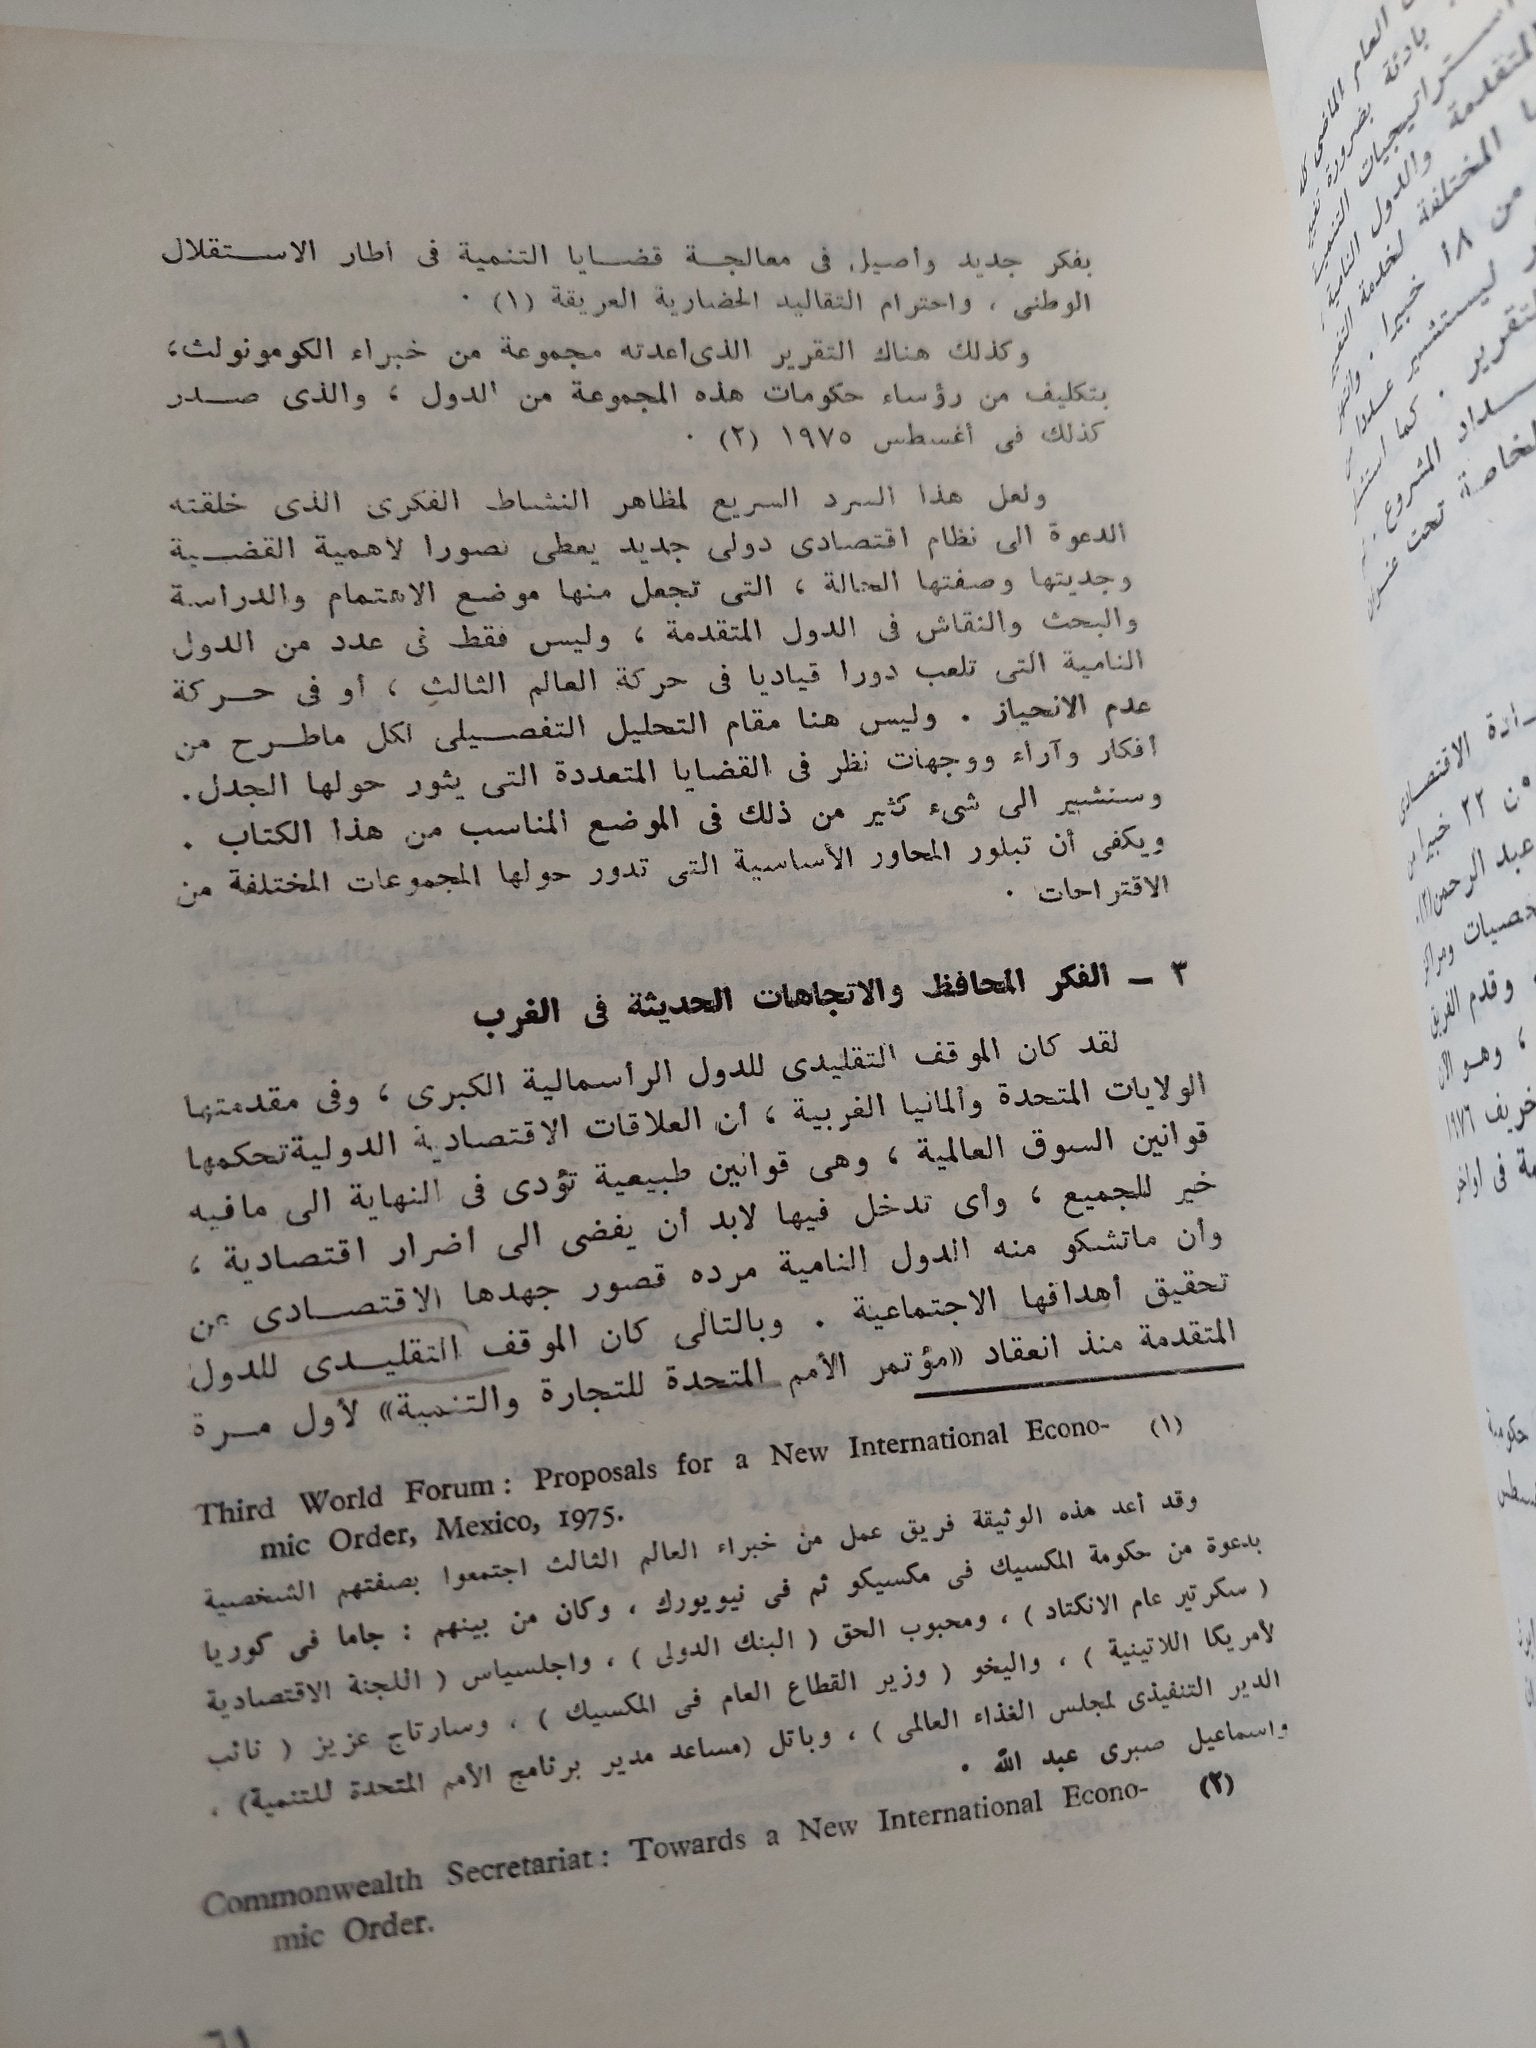 بفكر جديد وأصيل في معالجة قضايا التنمية في اطار الاستقلال
الوطنى ، واحترام التقاليد الحضارية العريقة (١) ٠
وكذلك هناك التقرير الذى أعدته مجموعة من خبراء الكومونولث،
بتكليف من رؤساء حكومات هذه المجموعة من الدول ، والذى صدر
كذلك فى أغسطس ١٩٧٥ (٢) ٠
ولعل هذا السرد السريع لمظاهر النشاط الفكرى الذى خلقته
الدعوة الى نظام اقتصادى دولى جديد يعطى تصورا لاهمية القضية
وجديتها وصفتها الحالة ، التى تجعل منها موضع الاهتمام والدراسة
والبحث والنقاش فى الدول المتقدمة ، وليس فقط فى عدد من الدول
النامية التى تلعب دورا قياديا فى حركة العالم الثالث ، أو فى حركة
عدم الانحياز ٠ وليس هنا مقام التحليل التفصيلى لكل ماطرح من
أفكار وآراء ووجهات نظر فى القضايا المتعددة التى يثور حولها الجدل٠
وسنشير الى شىء كثير من ذلك فى الموضع المناسب من هذا الكتاب ٠
ويكفى أن تبلور المحاور الأساسية التى تدور حولها المجموعات المختلفة من
الاقتراحات ٠
٣ ــ الفكر المحافظ والاتجاهات الحديثة فى الغرب
لقد كان الموقف التقليدى للدول الرأسمالية الكبرى ، وفى مقدمتها
الولايات المتحدة وألمانيا الغربية ، أن العلاقات الاقتصادية الدولية تحكمها
قوانين السوق العالمية ، وهى قوانين طبيعية تؤدى فى النهاية الى مافيه
خير للجميع ، وأى تدخل فيها لابد أن يفضى الى أضرار اقتصادية ،
وأن ماتشكو منه الدول النامية مرده قصور جهدها الاقتصادى عن
تحقيق أهدافها الاجتماعية ٠ وبالتالى كان الموقف التقليدى للدول
المتقدمة منذ انعقاد «مؤتمر الأمم المتحدة للتجارة والتنمية» لأول مرة
(١) Third World Forum: Proposals for a New International Econo-
mic Order, Mexico, 1975.
وقد أعد هذه الوثيقة فريق عمل من خبراء العالم الثالث اجتمعوا بصفتهم الشخصية
بدعوة من حكومة المكسيك فى مكسيكو ثم فى نيويورك ، وكان من بينهم : جاما فى كوريا
( سكرتير عام الانكتاد ) ، ومحبوب الحق ( البنك الدولى ) ، واجلسياس ( اللجنة الاقتصادية
لأمريكا اللاتينية ) ، واليخو ( وزير القطاع العام فى المكسيك ) ، وسارتاج عزيز ( نائب
المدير التنفيذى لمجلس الغذاء العالمى ) ، وباتل (مساعد مدير برنامج الأمم المتحدة للتنمية) ،
واسماعيل صبرى عبد الله ٠
(٢) Commonwealth Secretariat: Towards a New International Econo-
mic Order.
٦١